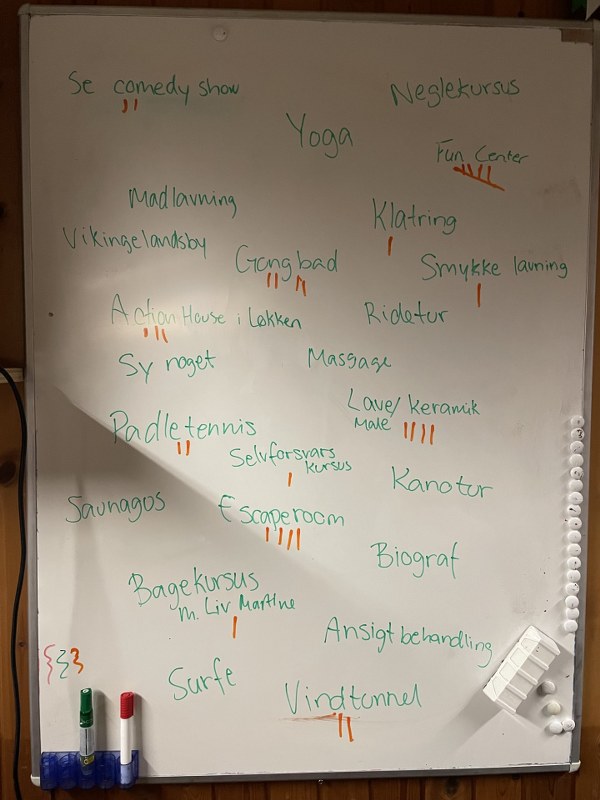 Se comedy show
Neglekursus
Yoga
Fun Center
Madlavning
Klatring
Vikingelandsby
Gongbad
Smykke lavning
Action House i Løkken
Ridetur
Sy noget
Massage
Lave/ keramik
Male
Padletennis
Selvforsvars
kursus
Kanotur
Saunagos
Escaperoom
Biograf
Bagekursus
m. Liv Martine
Ansigt behandling
Surfe
Vindtunnel